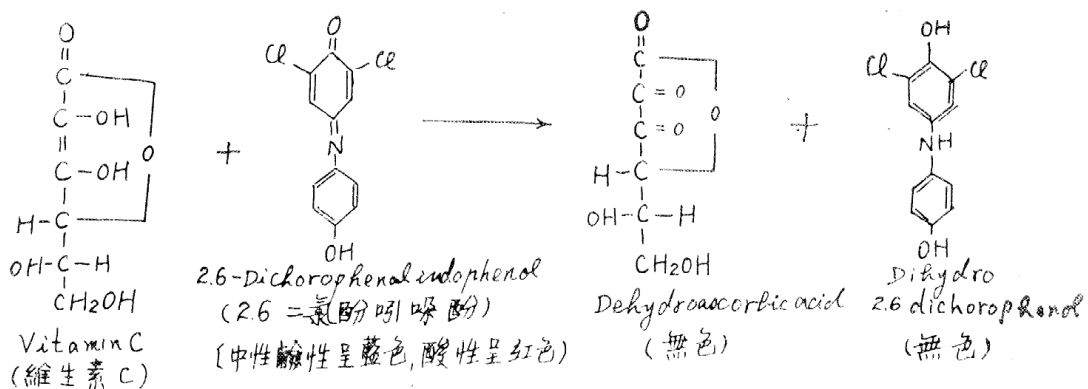 O
C
C-OH
C-OH
H-C
OH-C-H
CH2OH
O
Vitamin C
(維生素 C)
+
O
Cl
Cl
N
OH
2.6-Dichorophenalindophenol
(2.6 二氯酚吲哚酚)
(中性鹼性呈藍色,酸性呈紅色)
O
C
C=O
C=O
H-C
OH-C-H
CH2OH
O
Dehydroascorbic acid
(無色)
+
OH
Cl
Cl
NH
OH
Dihydro
2.6 dichorophenol
(無色)